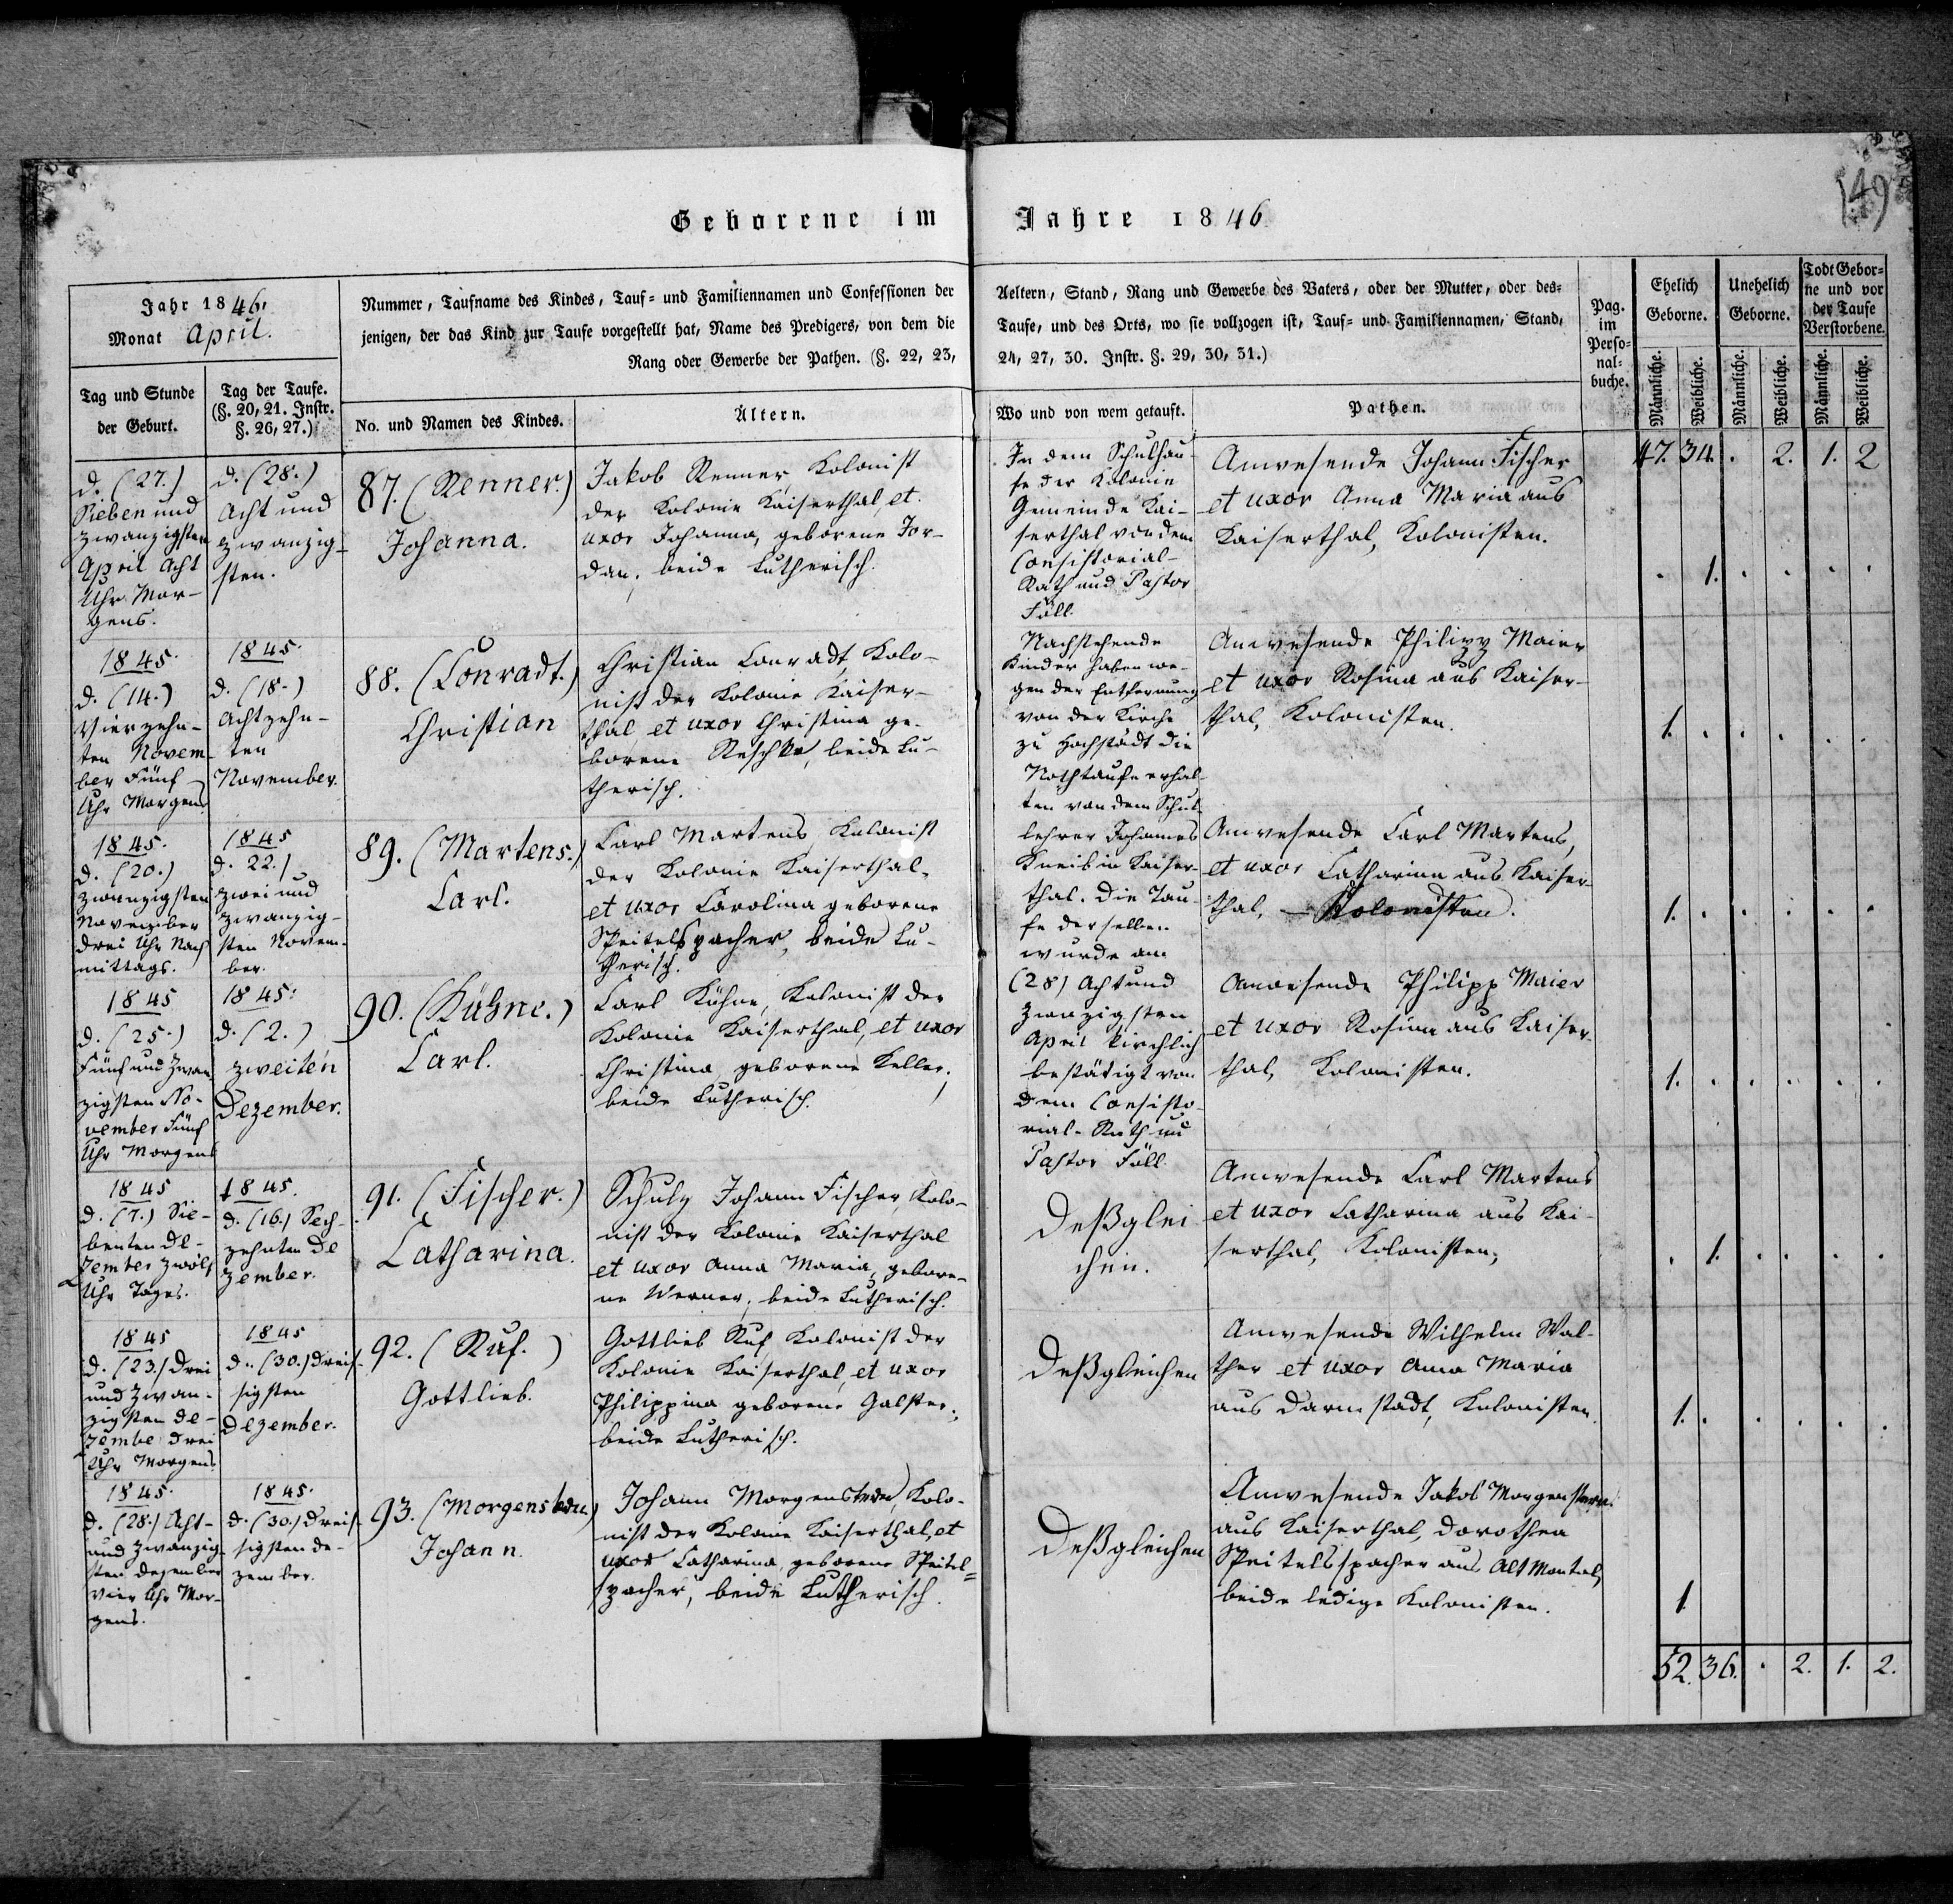 Geborene im Jahre 1846.
149
Jahr 1846.
Monat April.
Nummer, Taufname des Kindes, Tauf- und Familiennamen und Confessionen der
jenigen, der das Kind zur Taufe vorgestellt hat, Name des Predigers, von dem die
Rang oder Gewerbe der Pathen. (§. 22, 23,
Aeltern, Stand, Rang und Gewerbe des Vaters, oder der Mutter, oder des-
Taufe, und des Orts, wo sie vollzogen ist, Tauf- und Familiennamen, Stand,
24, 27, 30. Instr. §. 29, 30, 31.)
Pag.
im
Perso-
nal-
buche.
Ehelich
Geborne.
Unehelich
Geborne.
Todt Gebor-
ne und vor
der Taufe
Verstorbene.
Tag und Stunde
der Geburt.
Tag der Taufe.
(§. 20, 21. Instr.
§. 26, 27.)
No. und Namen des Kindes.
Ältern.
Wo und von wem getauft.
Pathen.
Männliche.
Weibliche.
Männliche.
Weibliche.
Männliche.
Weibliche.
d. (27.)
Sieben und
zwanzigsten
April Acht
Uhr Mor-
gens.
d. (28.)
Acht und
zwanzig-
sten.
87. (Renner.)
Johanna.
Jakob Renner, Kolonist
der Kolonie Kaiserthal, et
uxor Johanna, geborene Jor-
dan, beide Lutherisch.
In dem Schulhau-
se der Kolonie
Gemeinde Kai-
serthal von dem
Consistorial-
Rath und Pastor
Föll.
Anwesende Johann Fischer
et uxor Anna Maria aus
Kaiserthal, Kolonisten.
47. 34. . 2. 1. 2
. 1. . . . .
1845.
d. (14.)
Vierzehn-
ten Novem-
ber Fünf
Uhr Morgens
1845.
d. (18.)
Achtzehn-
ten
November.
88. (Conradt.)
Christian
Christian Conradt, Kolo-
nist der Kolonie Kaiser-
thal, et uxor Christina ge-
borene Reschke, beide Lu-
therisch.
Nachstehende
Kinder haben we-
gen der Entfernung
von der Kirche
zu Hochstädt die
Nothtaufe erhal-
ten von dem Schul-
lehrer Johannes
Kneib in Kaiser-
thal. Die Tau-
fe derselben
wurde am
(28) Acht und
zwanzigsten
April kirchlich
bestätigt von
dem Consisto-
rial-Rath und
Pastor Föll.
Anwesende Philipp Maier
et uxor Rosina aus Kaiser-
thal, Kolonisten.
1. . . . . .
1845.
d. (20.)
zwanzigsten
November
drei Uhr Nach
mittags.
1845
d. 22.)
zwei und
zwanzig-
sten Novem-
ber.
89. (Martens.)
Carl.
Carl Martens, Kolonist
der Kolonie Kaiserthal,
et uxor Carolina geborene
Speitelspacher, beide Lu-
therisch.
Anwesende Carl Martens,
et uxor Catharina aus Kaiser-
thal, — Kolonisten.
1. . . . . .
1845
d. (25.)
Fünf und Zwan
zigsten No-
vember Fünf
Uhr Morgens
1845:
d. (2.)
zweiten
Dezember.
90. (Kühne.)
Carl.
Carl Kühne, Kolonist der
Kolonie Kaiserthal, et uxor
Christina geborene Keller,
beide Lutherisch.
Anwesende Philipp Maier
et uxor Rosina aus Kaiser-
thal, Kolonisten.
1. . . . . .
1845
d. (7.) Sie-
benten De-
zember zwölf
Uhr Tages.
1845.
d. (16.) Sech-
zehnten De
zember.
91. (Fischer.)
Catharina.
Schulz Johann Fischer, Kolo-
nist der Kolonie Kaiserthal
et uxor Anna Maria, gebore-
ne Werner, beide Lutherisch.
Deßglei
chen.
Anwesende Carl Martens
et uxor Catharina aus Kai-
serthal, Kolonisten,
. 1. . . . .
1845
d. (23.) Drei
und Zwan-
zigsten De-
zember drei
Uhr Morgens
1845
d. (30.) dreis-
sigsten
Dezember.
92. (Ruf.)
Gottlieb.
Gottlieb Ruf, Kolonist der
Kolonie Kaiserthal, et uxor
Philippina geborene Galster,
beide Lutherisch.
Deßgleichen
Anwesende Wilhelm Wal-
ther et uxor Anna Maria
aus Darmstadt, Kolonisten.
1. . . . . .
1845.
d. (28.) Acht-
und Zwanzig-
sten Dezember
Vier Uhr Mor-
gens.
1845.
d. (30.) dreis-
sigsten De-
zember.
93. (Morgenstern)
Johann.
Johann Morgenstern, Kolo-
nist der Kolonie Kaiserthal, et
uxor Catharina, geborene Speitel-
spacher, beide Lutherisch.
Deßgleichen
Anwesende Jakob Morgenstern
aus Kaiserthal, Dorothea
Speitelsspacher aus Alt Montal,
beide ledige Kolonisten.
1
52. 36. . 2. 1. 2.